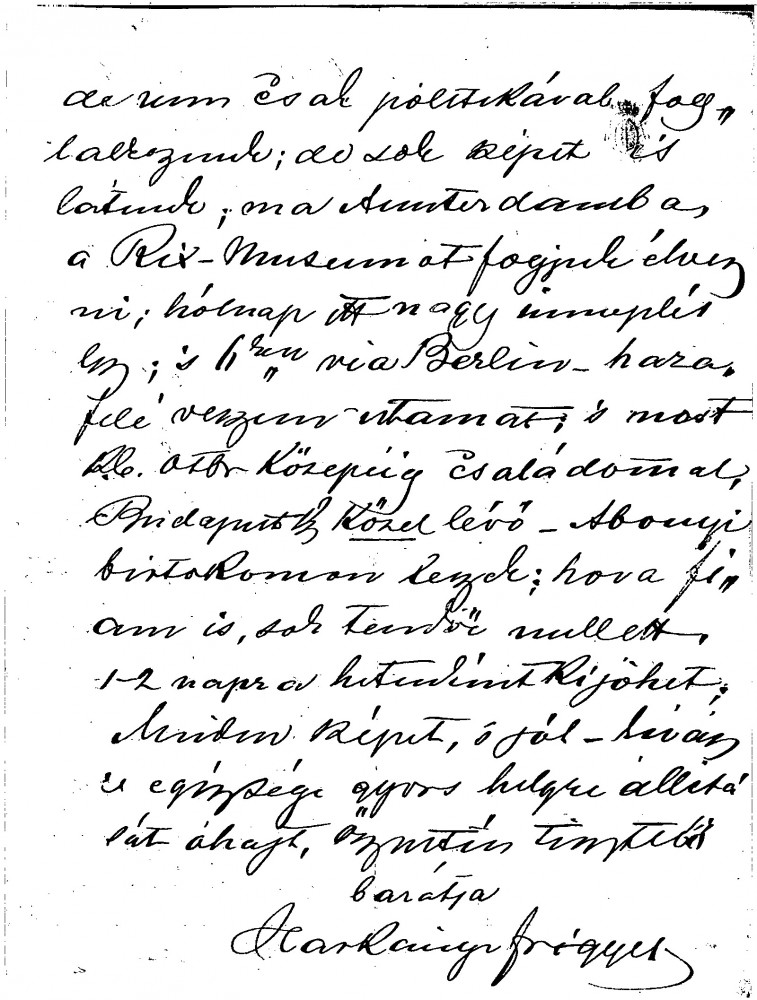 de nem csak politikával fog„
lalkozunk; de sok képet is
látunk; ma Amsterdamba,
a Rix-Museumot fogjuk élvez
ni; hólnap itt nagy ünneplés
lesz; 's 6 „ via Berlin - haza„
felé veszem utamat; 's most
k.b. Otbr Közepéig családommal,
Budapesthez közel lévő - Abonyi
birtokomon leszek; hova fi„
am is, sok teendői mellett,
1-2 napra hetenként kijöhet;
Minden képet, s jót - kíván
's egészsége gyors helyre állitá
sát óhajt, őszintén tisztelő
barátja
Harkányi Frigyes